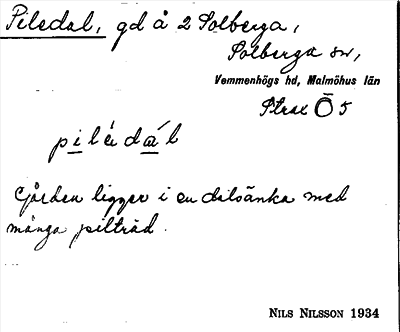 Piledal, gd å 2 Solberga,
Solberga sn,
Vemmenhögs hd, Malmöhus län
Strax Ö 5
pilédál
Gården ligger i en dalsänka med
många pilträd.
NILS NILSSON 1934